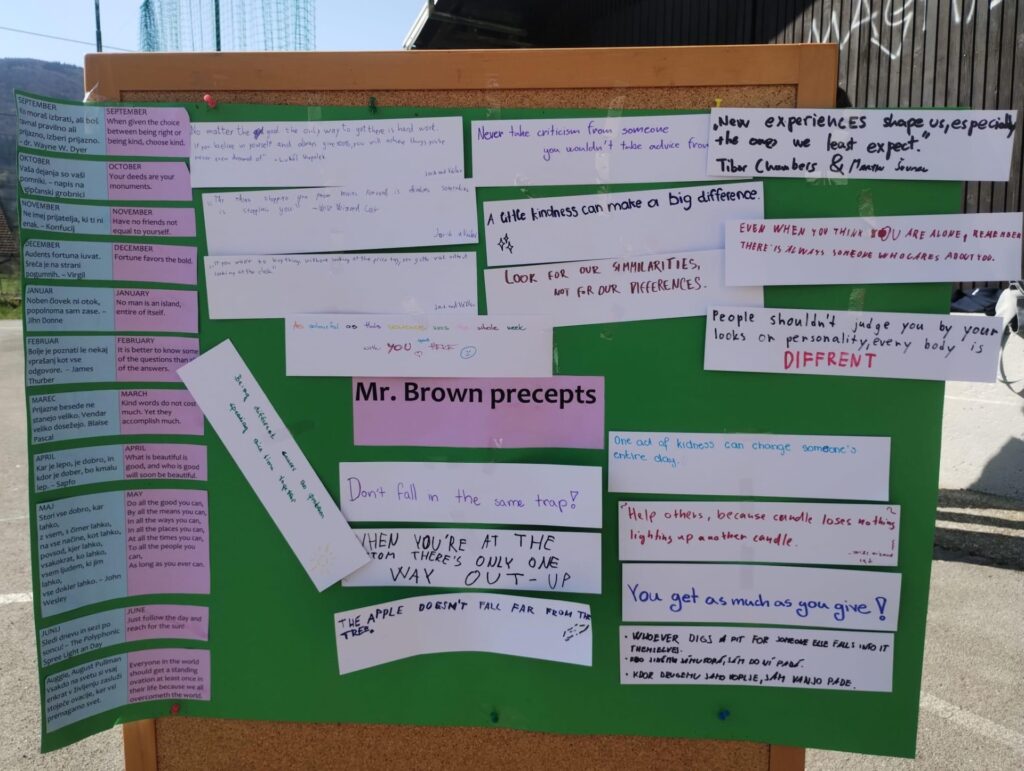 SEPTEMBER
moraš izbrati, ali boš
ravnal pravilno ali
prijazno, izberi prijazno.
- dr. Wayne W. Dyer
SEPTEMBER
When given the choice
between being right or
being kind, choose kind.
OKTOBER
Vaša dejanja so vaši
pomniki. – napis na
egipčanski grobnici
OCTOBER
Your deeds are your
monuments.
NOVEMBER
Ne imej prijatelja, ki ti ni
enak. – Konfucij
NOVEMBER
Have no friends not
equal to yourself.
DECEMBER
Audents fortuna iuvat.
Sreča je na strani
pogumnih. – Virgil
DECEMBER
Fortune favors the bold.
JANUAR
Noben človek ni otok,
popolnoma sam zase. –
Jihn Donne
JANUARY
No man is an island,
entire of itself.
FEBRUAR
Bolje je poznati le nekaj
vprašanj kot vse
odgovore. – James
Thurber
FEBRUARY
It is better to know some
of the questions than
of the answers.
MAREC
Prijazne besede ne
stanejo veliko. Vendar
veliko dosežejo. Blaise
Pascal
MARCH
Kind words do not cost
much. Yet they
accomplish much.
APRIL
Kar je lepo, je dobro, in
kdor je dober, bo kmalu
lep. – Sapfo
APRIL
What is beautiful is
good, and who is good
will soon be beautiful.
MAJ
Stori vse dobro, kar
lahko,
z vsem, s čimer lahko,
na vse načine, kot lahko,
povsod, kjer lahko,
vsakokrat, ko lahko,
vsem ljudem, ki jim
lahko,
vse dokler lahko. – John
Wesley
MAY
Do all the good you can,
By all the means you can,
In all the ways you can,
In all the places you can,
At all the times you can,
To all the people you
can,
As long as you ever can.
JUNIJ
Sledi dnevu in sezi po
soncu! – The Polyphonic
Spree Light an Day
JUNE
Just follow the day and
reach for the sun!
Auggie, August Pullman
vsakdo na svetu si vsaj
enkrat v življenju zasluži
stoječe ovacije, ker vsi
premagamo svet.
Everyone in the world
should get a standing
ovation at least once in
their life because we all
overcometh the world.
No matter the goal the only way to get there is hard work.
If you believe in yourself and always give 100%, you will achieve things you've
never even dreamed of.
is stopping you
"If you want to buy thing without looking at the price tag,
looking at the clock"
As colorful as this sentence was the whole week
with YOU
Being different
Mr. Brown precepts
Don't fall in the same trap!
WHEN YOU'RE AT THE
BOTTOM THERE'S ONLY ONE
WAY OUT-UP
THE APPLE DOESN'T FALL FAR FROM THE
TREE.
Never take criticism from someone
you wouldn't take advice from
A little kindness can make a big difference.
LOOK FOR OUR SIMMILARITIES,
NOT FOR OUR DIFFERENCES.
"New experiences shape us, especially
the ones we least expect."
Tibor Chambers &
EVEN WHEN YOU THINK YOU ARE ALONE, REMEMBER
THERE IS ALWAYS SOMEONE WHO CARES ABOUT YOU.
People shouldn't judge you by your
looks or personality, every body is
DIFFRENT
One act of kidness can change someone's
entire day.
"Help others, because candle loses nothing
lighting up another candle.
You get as much as you give!
• WHOEVER DIGS A PIT FOR SOMEONE ELSE FALLS INTO IT
THEMSELVES.
• KDOR DRUGEMU JAMO KOPLJE, SAM VANJO PADE.